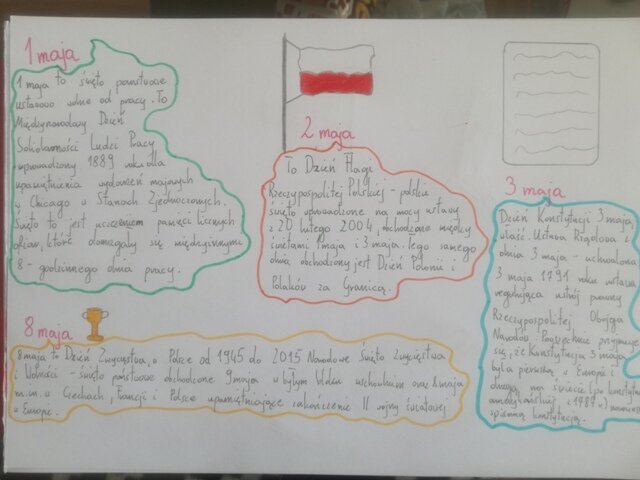 1 maja
1 maja to święto państwowe
ustawowo wolne od pracy. To
Międzynarodowy Dzień
Solidarności Ludzi Pracy
wprowadzony 1889 roku dla
upamiętnienia wydarzeń majowych
w Chicago w Stanach Zjednoczonych.
Święto to jest uczczeniem pamięci licznych
ofiar, które domagały się między innymi
8-godzinnego dnia pracy.
2 maja
To Dzień Flagi
Rzeczypospolitej Polskiej - polskie
święto wprowadzone na mocy ustawy
z 20 lutego 2004, obchodzone między
świętami 1 maja i 3 maja. Tego samego
dnia obchodzony jest Dzień Polonii i
Polaków za Granicą.
3 maja
Dzień Konstytucji 3 maja
właśc. Ustawa Rządowa z
dnia 3 maja - uchwalona
3 maja 1791 roku ustawa
regulująca ustrój prawny
Rzeczypospolitej Obojga
Narodów. Powszechnie przyjmuje
się, że Konstytucja 3 maja
była pierwszą w Europie i
drugą na świecie (po konstytucji
amerykańskiej z 1787 r.)
spisaną konstytucją.
8 maja
8 maja to Dzień Zwycięstwa, w Polsce od 1945 do 2015 Narodowe Święto Zwycięstwa
i Wolności - święto państwowe obchodzone 9 maja w byłym bloku wschodnim oraz 8 maja
m.in. w Czechach, Francji i Polsce upamiętniające zakończenie II wojny światowej
w Europie.